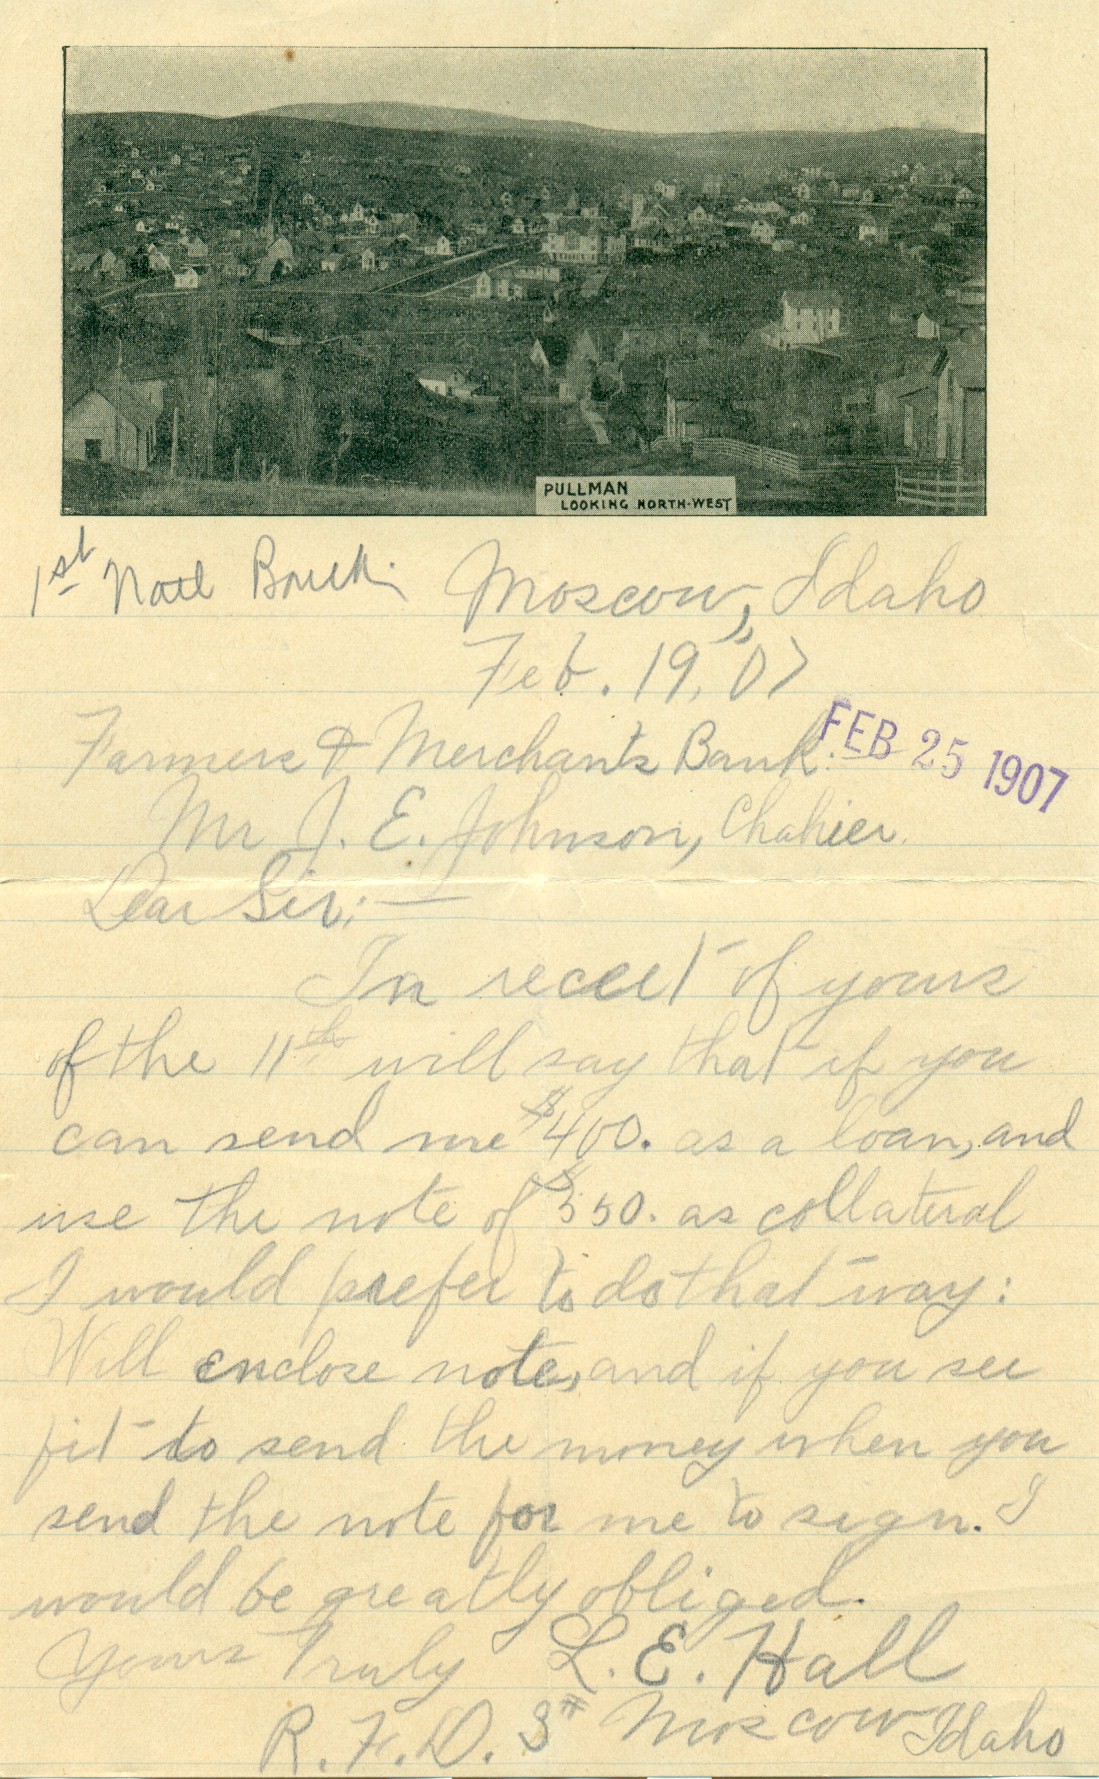 PULLMAN
LOOKING NORTH-WEST
1st Natl Bank.
Moscow, Idaho
Feb. 19, 07
Farmers & Merchants Bank.
FEB 25 1907
Mr J. E. Johnson, Chahier.
Dear Sir:—
In receet of yours
of the 11th will say that if you
can send me $400. as a loan, and
use the note of $350. as collateral
I would prefer to do that way:
Will enclose note, and if you see
fit to send the money when you
send the note for me to sign. I
would be greatly obliged.
Yours Truly L. E. Hall
R. F. D. 3# Moscow Idaho